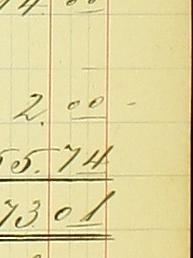 2.00 -
55.74
73.01